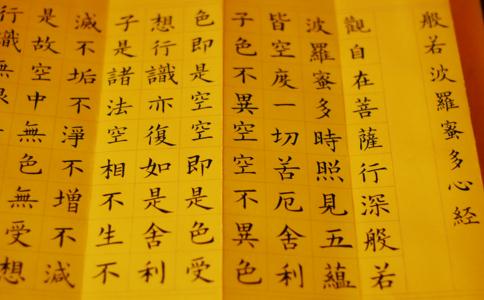 般若波羅蜜多心経
觀自在菩薩行深般若
波羅蜜多時照見五蘊
皆空度一切苦厄舍利
子色不異空空不異色
色即是空空即是色受
想行識亦復如是舍利
子是諸法空相不生不
滅不垢不淨不增不減
是故空中無色無受想
行識無眼